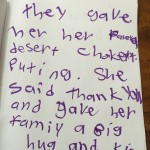 they gave
her her
desert choket
Puting. She
said thank you
and gave her
family a Big
hug and